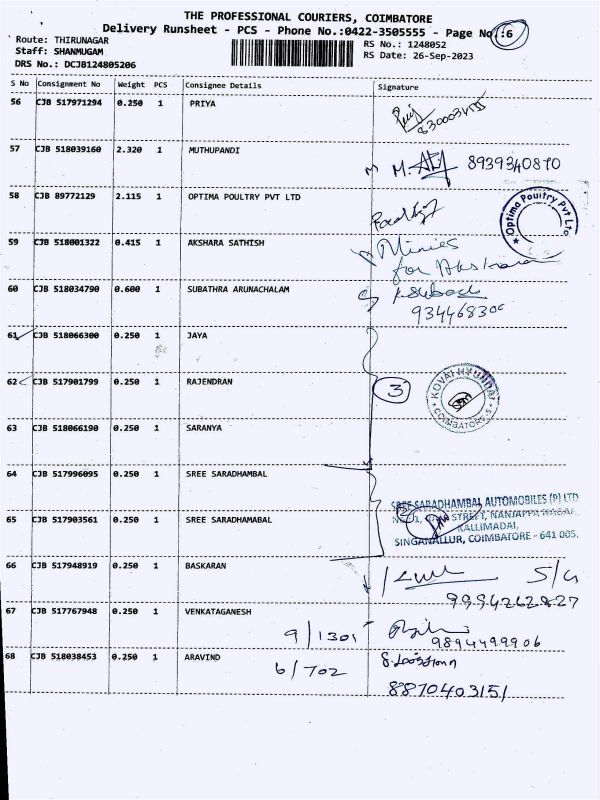 THE PROFESSIONAL COURIERS, COIMBATORE
Delivery Runsheet - PCS - Phone No.:0422-3505555 - Page No.:6
Route: THIRUNAGAR
RS No.: 1248052
Staff: SHANMUGAM
RS Date: 26-Sep-2023
DRS No.: DCJB124805206
S No Consignment No Weight PCS Consignee Details Signature
56 CJB 517971294 0.250 1 PRIYA
57 CJB 518039160 2.320 1 MUTHUPANDI 8939340870
58 CJB 89772129 2.115 1 OPTIMA POULTRY PVT LTD
Optima Poultry Pvt Ltd
59 CJB 518001322 0.415 1 AKSHARA SATHISH
for Akshara
60 CJB 518034790 0.600 1 SUBATHRA ARUNACHALAM
61 CJB 518066300 0.250 1 JAYA
62 CJB 517901799 0.250 1 RAJENDRAN 3
KOVAI HYUNDAI
COIMBATORE-5
63 CJB 518066190 0.250 1 SARANYA
64 CJB 517996095 0.250 1 SREE SARADHAMBAL
SREE SARADHAMBAL AUTOMOBILES (P) LTD
65 CJB 517903561 0.250 1 SREE SARADHAMABAL
STREET, NANJAPPA NAGAR,
KALLIMADAI,
SINGANALLUR, COIMBATORE - 641 005.
66 CJB 517948919 0.250 1 BASKARAN S/G
9994262827
67 CJB 517767948 0.250 1 VENKATAGANESH
9/1301 9894499906
68 CJB 518038453 0.250 1 ARAVIND
6/702
8870403151